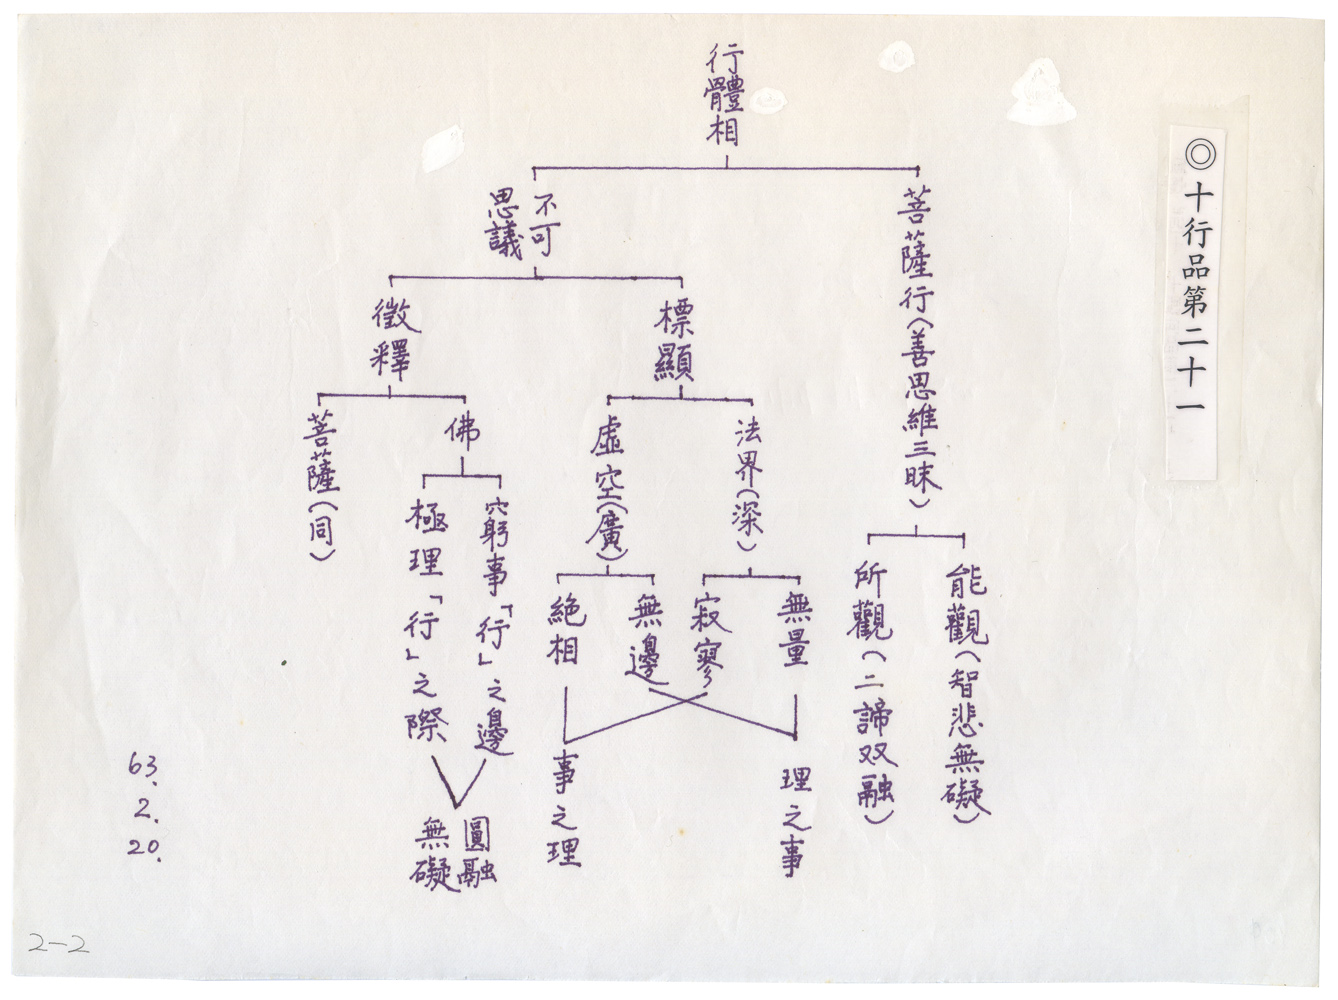 ◎十行品第二十一
行體相
菩薩行(善思維三昧)
能觀(智悲無礙)
所觀(二諦双融)
不可
思議
標顯
法界(深)
無量
寂寥
虛空(廣)
無邊
絕相
理之事
事之理
徵釋
佛
窮事「行」之邊
極理「行」之際
圓融
無礙
菩薩(同)
63.
2.
20.
2-2